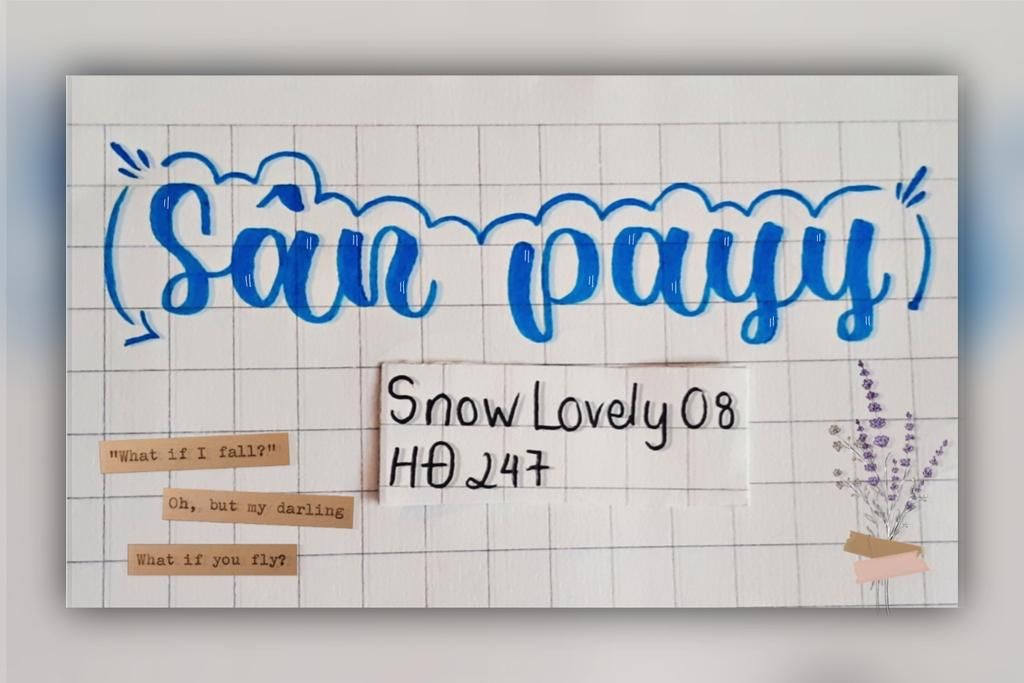 Sân payy
SnowLovely08
HĐ 247
"What if I fall?"
Oh, but my darling
What if you fly?